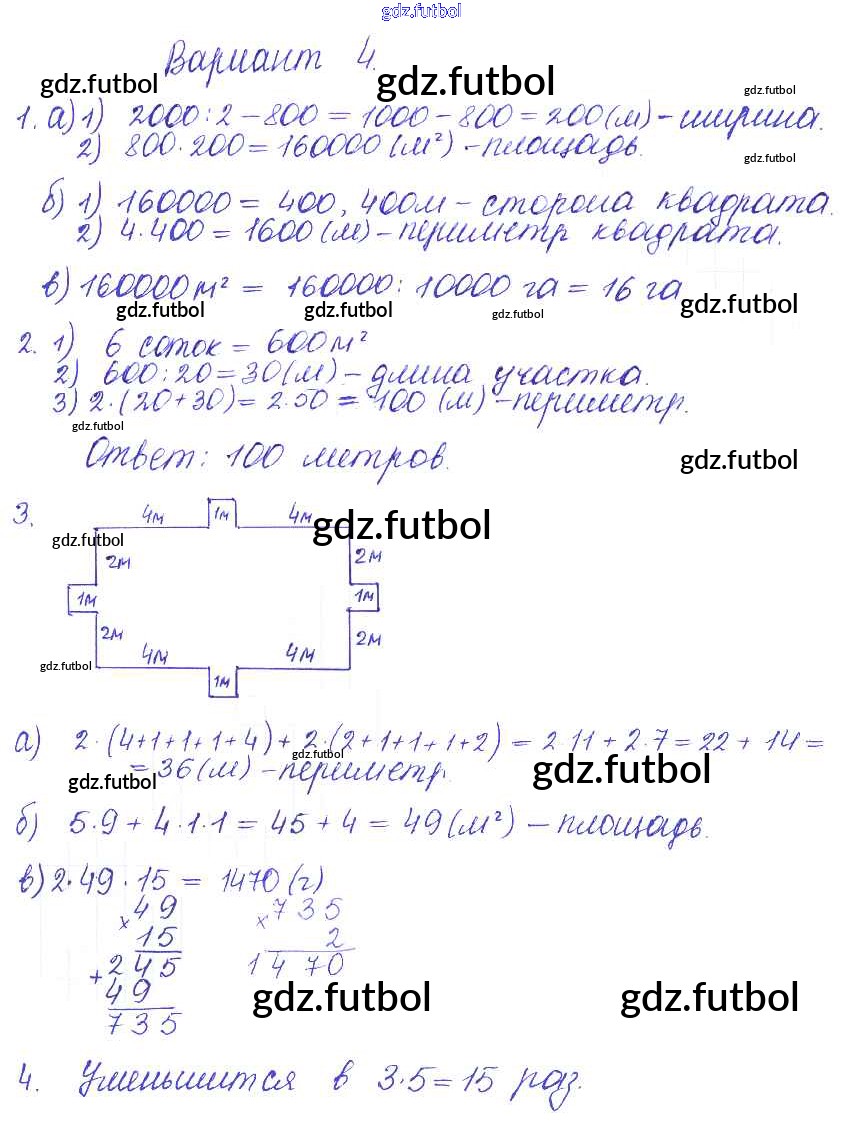 gdz.futbol
Вариант 4.
gdz.futbol gdz.futbol gdz.futbol
1. а) 1) 2000:2-800=1000-800=200(м)-ширина.
2) 800·200=160000(м²)-площадь.
gdz.futbol
б) 1) 160000 = 400, 400м-сторона квадрата.
2) 4·400=1600(м)-периметр квадрата.
в) 160000м² = 160000:10000 га = 16 га
gdz.futbol gdz.futbol gdz.futbol gdz.futbol
2. 1) 6 соток = 600м²
2) 600:20=30(м)-длина участка.
3) 2·(20+30)=2·50=100 (м)-периметр.
gdz.futbol
Ответ: 100 метров.
gdz.futbol
3.
4м 1м 4м
gdz.futbol gdz.futbol
2м 2м
1м 1м
2м 2м
4м 4м
gdz.futbol
1м
а) 2·(4+1+1+1+4)+2·(2+1+1+1+2)=2·11+2·7=22+14=
gdz.futbol
=36(м)-периметр.
gdz.futbol gdz.futbol
б) 5·9+4·1·1=45+4=49(м²)-площадь.
в) 2·49·15=1470(г)
×49 ×735
15 2
+245 1470
49
735
gdz.futbol gdz.futbol
4. Уменьшится в 3·5=15 раз.